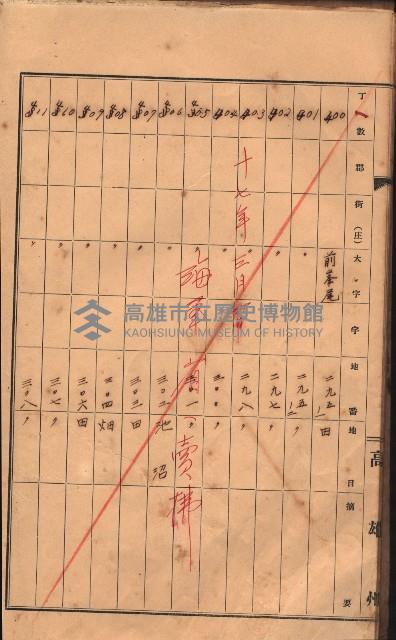 丁數 郡 街(庄) 大字 字 地番 地目 摘要
400 前峯尾 二九五ノ一 田
401 〃 二九五ノ二 〃
402 〃 二九七 〃
403 〃 二九八 〃
404 〃
405 〃
406 〃 三〇二 池沼
407 〃 三〇三 田
408 〃 三〇四 畑
409 〃 三〇六 田
410 〃 三〇七 〃
411 〃 三〇八 〃
十七年三月
海軍
賣拂
高雄州
高雄市立歷史博物館
KAOHSIUNG MUSEUM OF HISTORY